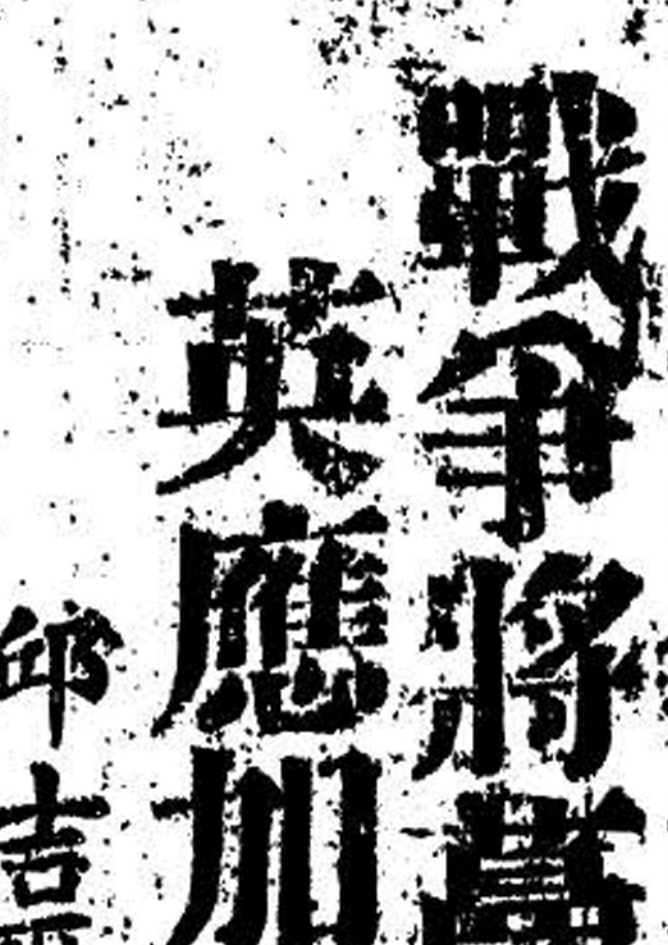 戰爭將蔓
英應加
邱吉